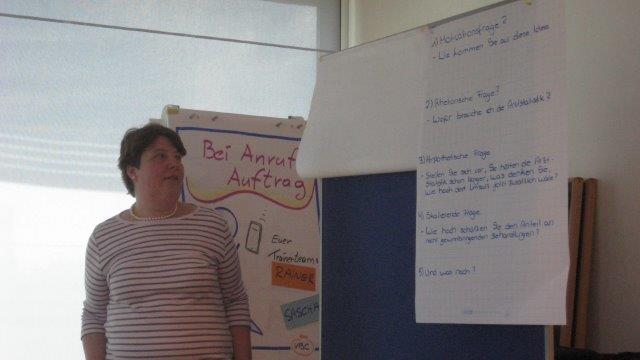 Bei Anruf
Auftrag
Euer
Trainerteam:
RAINER
SASCHA
VBC
1) Motivationsfrage?
- Wie kommen Sie auf diese Idee
2) Rhetorische Frage?
- Wofür brauche ich die Arztstatistik?
3) Hypothetische Frage
- Stellen Sie sich vor, Sie hätten die Arzt-
statistik schon länger, was denken Sie,
wie hoch der Umsatz jetzt zusätzlich wäre?
4) Skalierende Frage
- Wie hoch schätzen Sie den Anteil an
nicht gewinnbringenden Behandlungen?
5) Und was noch?